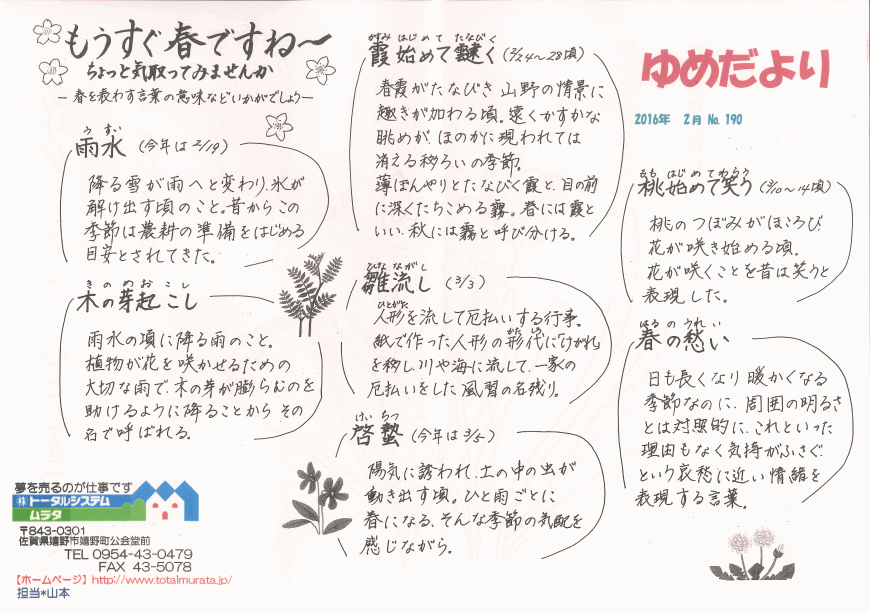 もうすぐ春ですね～
ちょっと気取ってみませんか
－春を表わす言葉の意味などいかがでしょう－
うすい
雨水（今年は2/19）
降る雪が雨へと変わり、氷が
解け出す頃のこと。昔からこの
季節は農耕の準備をはじめる
目安とされてきた。
きのめおこし
木の芽起こし
雨水の頃に降る雨のこと。
植物が花を咲かせるための
大切な雨で、木の芽が膨らむのを
助けるように降ることから その
名で呼ばれる。
かすみ はじめて たなびく
霞始めて靆く（2/24～28頃）
春霞がたなびき 山野の情景に
趣きが加わる頃。遠くかすかな
眺めが、ほのかに現われては
消える移ろいの季節。
薄ぼんやりとたなびく霞と、目の前
に深くたちこめる霧。春には霞と
いい、秋には霧と呼び分ける。
ひなながし
雛流し（3/3）
ひとがた
人形を流して厄払いする行事。
かたしろ
紙で作った人形の形代に「けがれ」
を移し、川や海に流して、一家の
厄払いをした風習の名残り。
けいちつ
啓蟄（今年は3/5）
陽気に誘われ、土の中の虫が
動き出す頃。ひと雨ごとに
春になる、そんな季節の気配を
感じながら。
ゆめだより
2016年 2月 No.190
もも はじめてわらう
桃始めて笑う（3/10～14頃）
桃のつぼみがほころび、
花が咲き始める頃。
花が咲くことを昔は笑うと
表現した。
はるのうれい
春の愁い
日も長くなり 暖かくなる
季節なのに、周囲の明るさ
とは対照的に、これといった
理由もなく気持がふさぐ、
という哀愁に近い情緒を
表現する言葉。
夢を売るのが仕事です
㈱トータルシステム
ムラタ
〒843-0301
佐賀県嬉野市嬉野町公会堂前
TEL 0954-43-0479
FAX 43-5078
【ホームページ】http://www.totalmurata.jp/
担当*山本